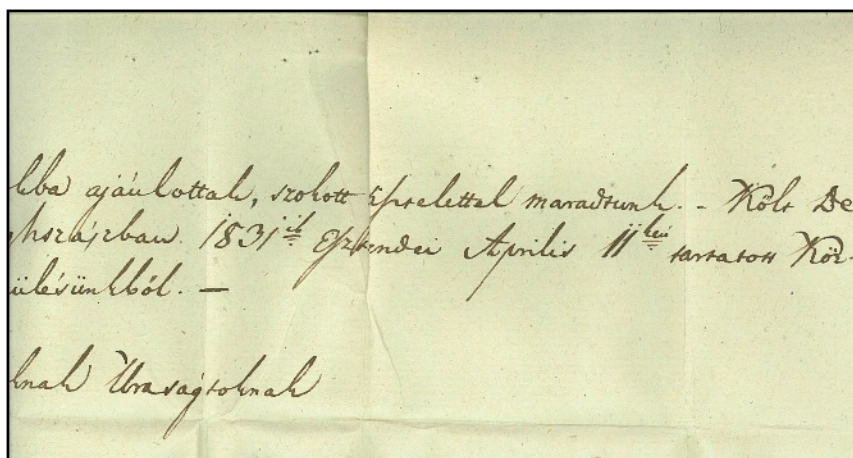 kba ajánlottak, szokott tisztelettel maradtunk. - Költ De
1831ik Esztendei Aprilis 11kén tartatott Köz-
ülésünkből. —
knak Uraságtoknak